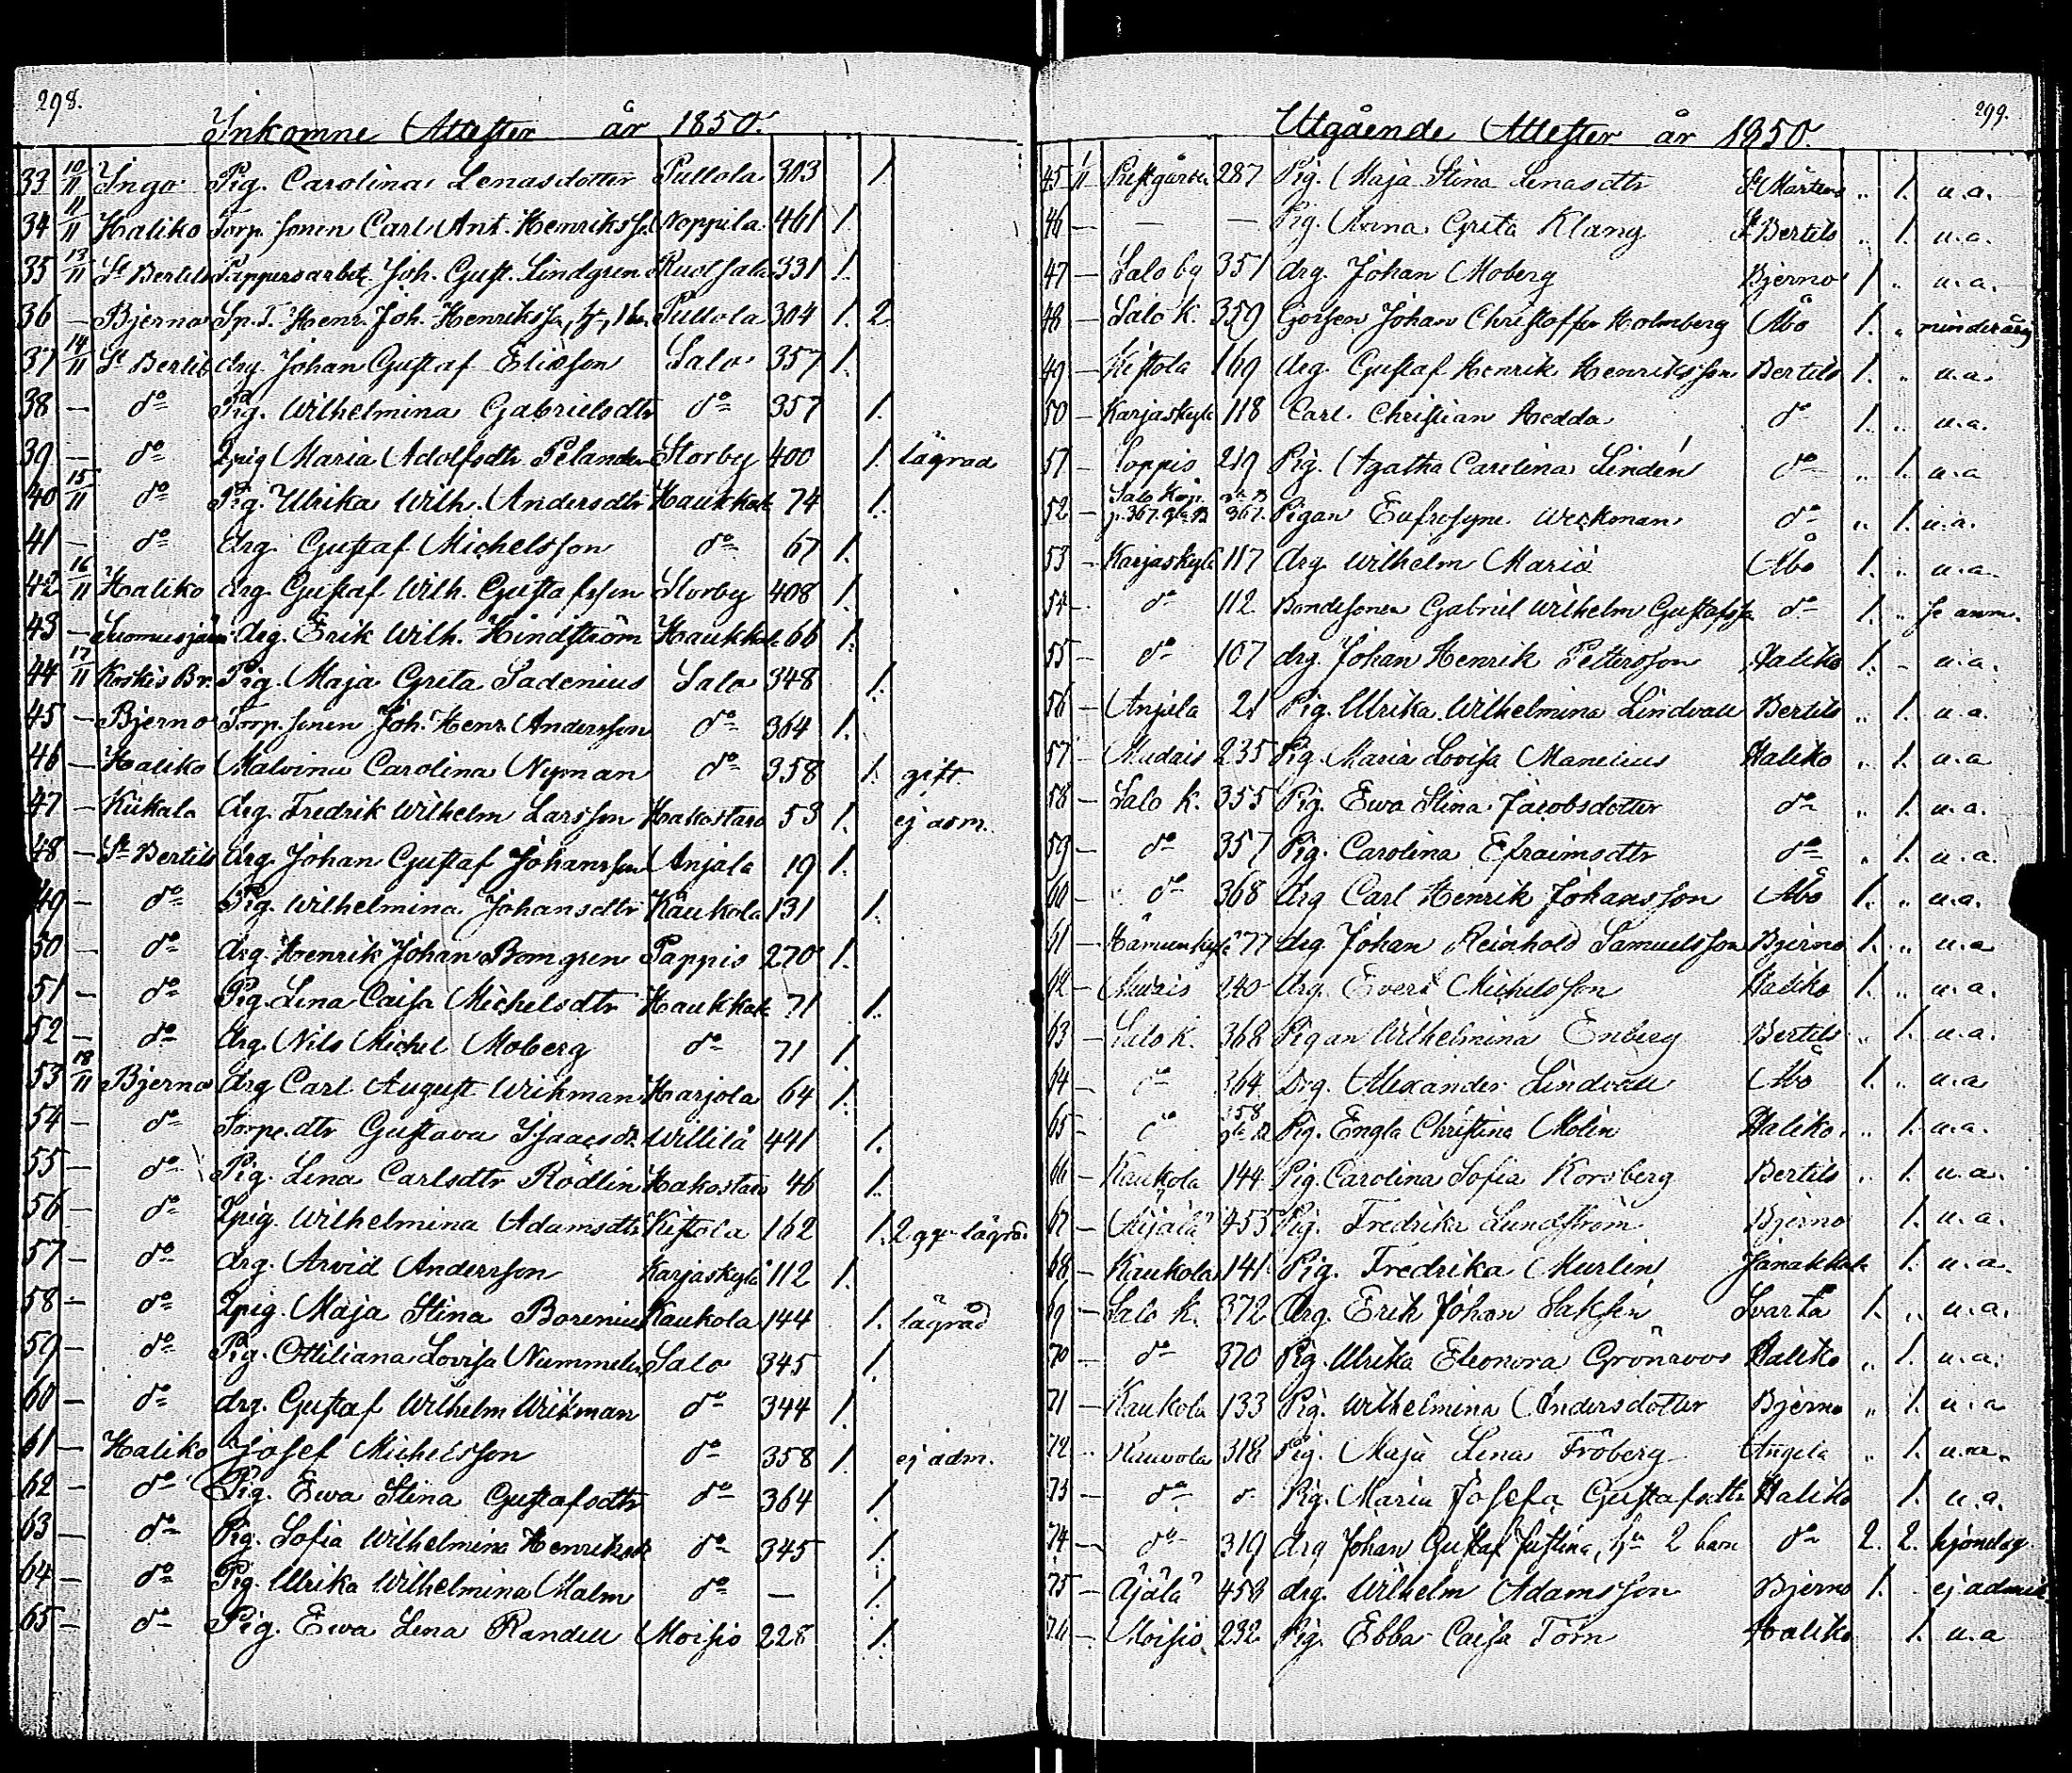 298.
Inkomne Attester år 1850.
33 10/11 Ingo Pig. Carolina Lenasdotter Pullola 303 1.
34 11/11 Haliko Torp. sonen Carl Ant. Henrikss. Noppila 461 1.
35 13/11 St Bertils Pappersarbet. Joh. Gust. Lindgren 331 1.
36 — Bjerno Sp. T. Henr. Joh. Henrikss, Pullola 304 1. 2.
37 14/11 St Bertils drg. Johan Gustaf Eliasson Salo 357 1.
38 — do Pig. Wilhelmina Gabrielsdtr do 357 1.
39 — do Qpig Maria Adolfsdtr Pelander Storby 400 1. lägrad
40 15/11 do Pig. Ulrika Wilh. Andersdtr Haukkala 74 1.
41 — do drg. Gustaf Michelsson do 67 1.
42 16/11 Haliko drg. Gustaf Wilh. Gustafsson Storby 408 1.
43 — Suomusjärvi drg. Erik Wilh. Hindström Haukkala 66 1.
44 17/11 Koskis Br. Pig. Maja Greta Sadenius Salo 348 1.
45 — Bjerno Torp. sonen Joh. Henr. Andersson do 364 1.
46 — Haliko Malvina Carolina Nyman do 358 1. gift
47 — Kiikala drg. Fredrik Wilhelm Larsson Hakostaro 53 1. ej adm.
48 — St Bertils drg. Johan Gustaf Johansson Anjala 19 1.
49 — do Pig. Wilhelmina Johansdtr Kaukola 131 1.
50 — do drg. Henrik Johan Bomgren Pappis 270 1.
51 — do Pig. Lina Caisa Michelsdtr Haukkala 71 1.
52 — do drg. Nils Michel Moberg do 71 1.
53 18/11 Bjerno drg Carl August Wikman Karjola 64 1.
54 — do Torpe.dtr Gustava Isaacsdr. Willilä 441 1.
55 — do Pig. Lena Carlsdtr Rödlin Hakostaro 46 1.
56 — do Qpig. Wilhelmina Adamsdtr Kistola 162 1. 2 gr lägrad
57 — do drg. Arvid Andersson Karjaskylä 112 1.
58 — do Qpig. Maja Stina Borenius Kaukola 144 1. lägrad
59 — do Pig. Ottiliana Lovisa Nummelin Salo 345 1.
60 — do drg. Gustaf Wilhelm Wikman do 344 1.
61 — Haliko Josef Michelsson do 358 1. ej adm.
62 — do Pig. Ewa Stina Gustafsdtr do 364 1.
63 — do Pig. Sofia Wilhelmina Henriksdr do 345 1.
64 — do Pig. Ulrika Wilhelmina Malm do — 1.
65 — do Pig. Ewa Lena Randell Moisio 228 1.
299.
Utgående Attester år 1850.
45 1/11 Prestgården 287 Pig. Maja Stina Lenasdtr St Mårtens „ 1. u.a.
46 — — — Pig. Anna Greta Klang St Bertils „ 1. u.a.
47 — Salo by 351 drg. Johan Moberg Bjerno 1 „ u.a.
48 — Salo k. 359 Gossen Johan Christoffer Holmberg Åbo 1. „ minderårig
49 — Kistola 169 drg. Gustaf Henrik Henriksson Bertils 1. „ u.a.
50 — Karjaskylä 118 Carl Christian Hedda do 1. „ u.a.
51 — Soppis 219 Pig. Agatha Carolina Lindén do „ 1. u.a
52 — Salo Köp. p. 367. 367. Pigan Eufrosyne Weckman do „ 1. u.a.
53 — Karjaskylä 117 drg. Wilhelm Mariö Åbo 1. „ u.a.
54 — do 112 Bondesonen Gabriel Wilhelm Gustafss. do 1. „ se anm.
55 — do 107 drg. Johan Henrik Pettersson Haliko 1. — u.a.
56 — Anjala 21 Pig. Ulrika Wilhelmina Lindvall Bertils „ 1. u.a.
57 — Mudais 235 Pig. Maria Lovisa Manelius Haliko „ 1. u.a
58 — Salo K. 355 Pig. Ewa Stina Jacobsdotter do „ 1. u.a.
59 — do 357 Pig. Carolina Efraimsdtr do „ 1. u.a.
60 — do 368 drg Carl Henrik Johansson Åbo 1. „ u.a.
61 — Hämeenkylä 77 drg. Johan Reinhold Samuelsson Bjerno 1. „ u.a
62 — Mudais 240 drg. Evert Michelsson Haliko 1. „ u.a.
63 — Salo k. 368 Pigan Wilhelmina Enberg Bertils „ 1. u.a.
64 — do 364 Drg. Alexander Lindvall Åbo 1. „ u.a
65 — do 358 Pig. Engla Christina Molin Haliko. „ 1. u.a.
66 — Kaukola 144 Pig. Carolina Sofia Korsberg Bertils „ 1. u.a.
67 — Äijälä 455 Pig. Fredrika Lundström Bjerno 1. u.a.
68 — Kaukola 141 Pig. Fredrika Murlin Janakkala 1. u.a.
69 — Salo K. 372 drg. Erik Johan Saksén Svartå 1. „ u.a.
70 — do 370 Pig. Ulrika Eleonora Grönroos Haliko „ 1. u.a.
71 — Kaukola 133 Pig. Wilhelmina Andersdotter Bjerno „ 1. u.a
72 — 318 Pig. Maja Lena Fröberg „ 1. u.a.
73 — do d. Pig. Maria Josefa Gustafsdtr Haliko 1. u.a.
74 — do 319 drg Johan Gustaf Justina, hu 2 barn do 2. 2. hjonelag.
75 — Äjälä 458 drg. Wilhelm Adamsson Bjerno 1. ej admit.
76 — Moisio 232 Pig. Ebba Caisa Törn Haliko 1. u.a